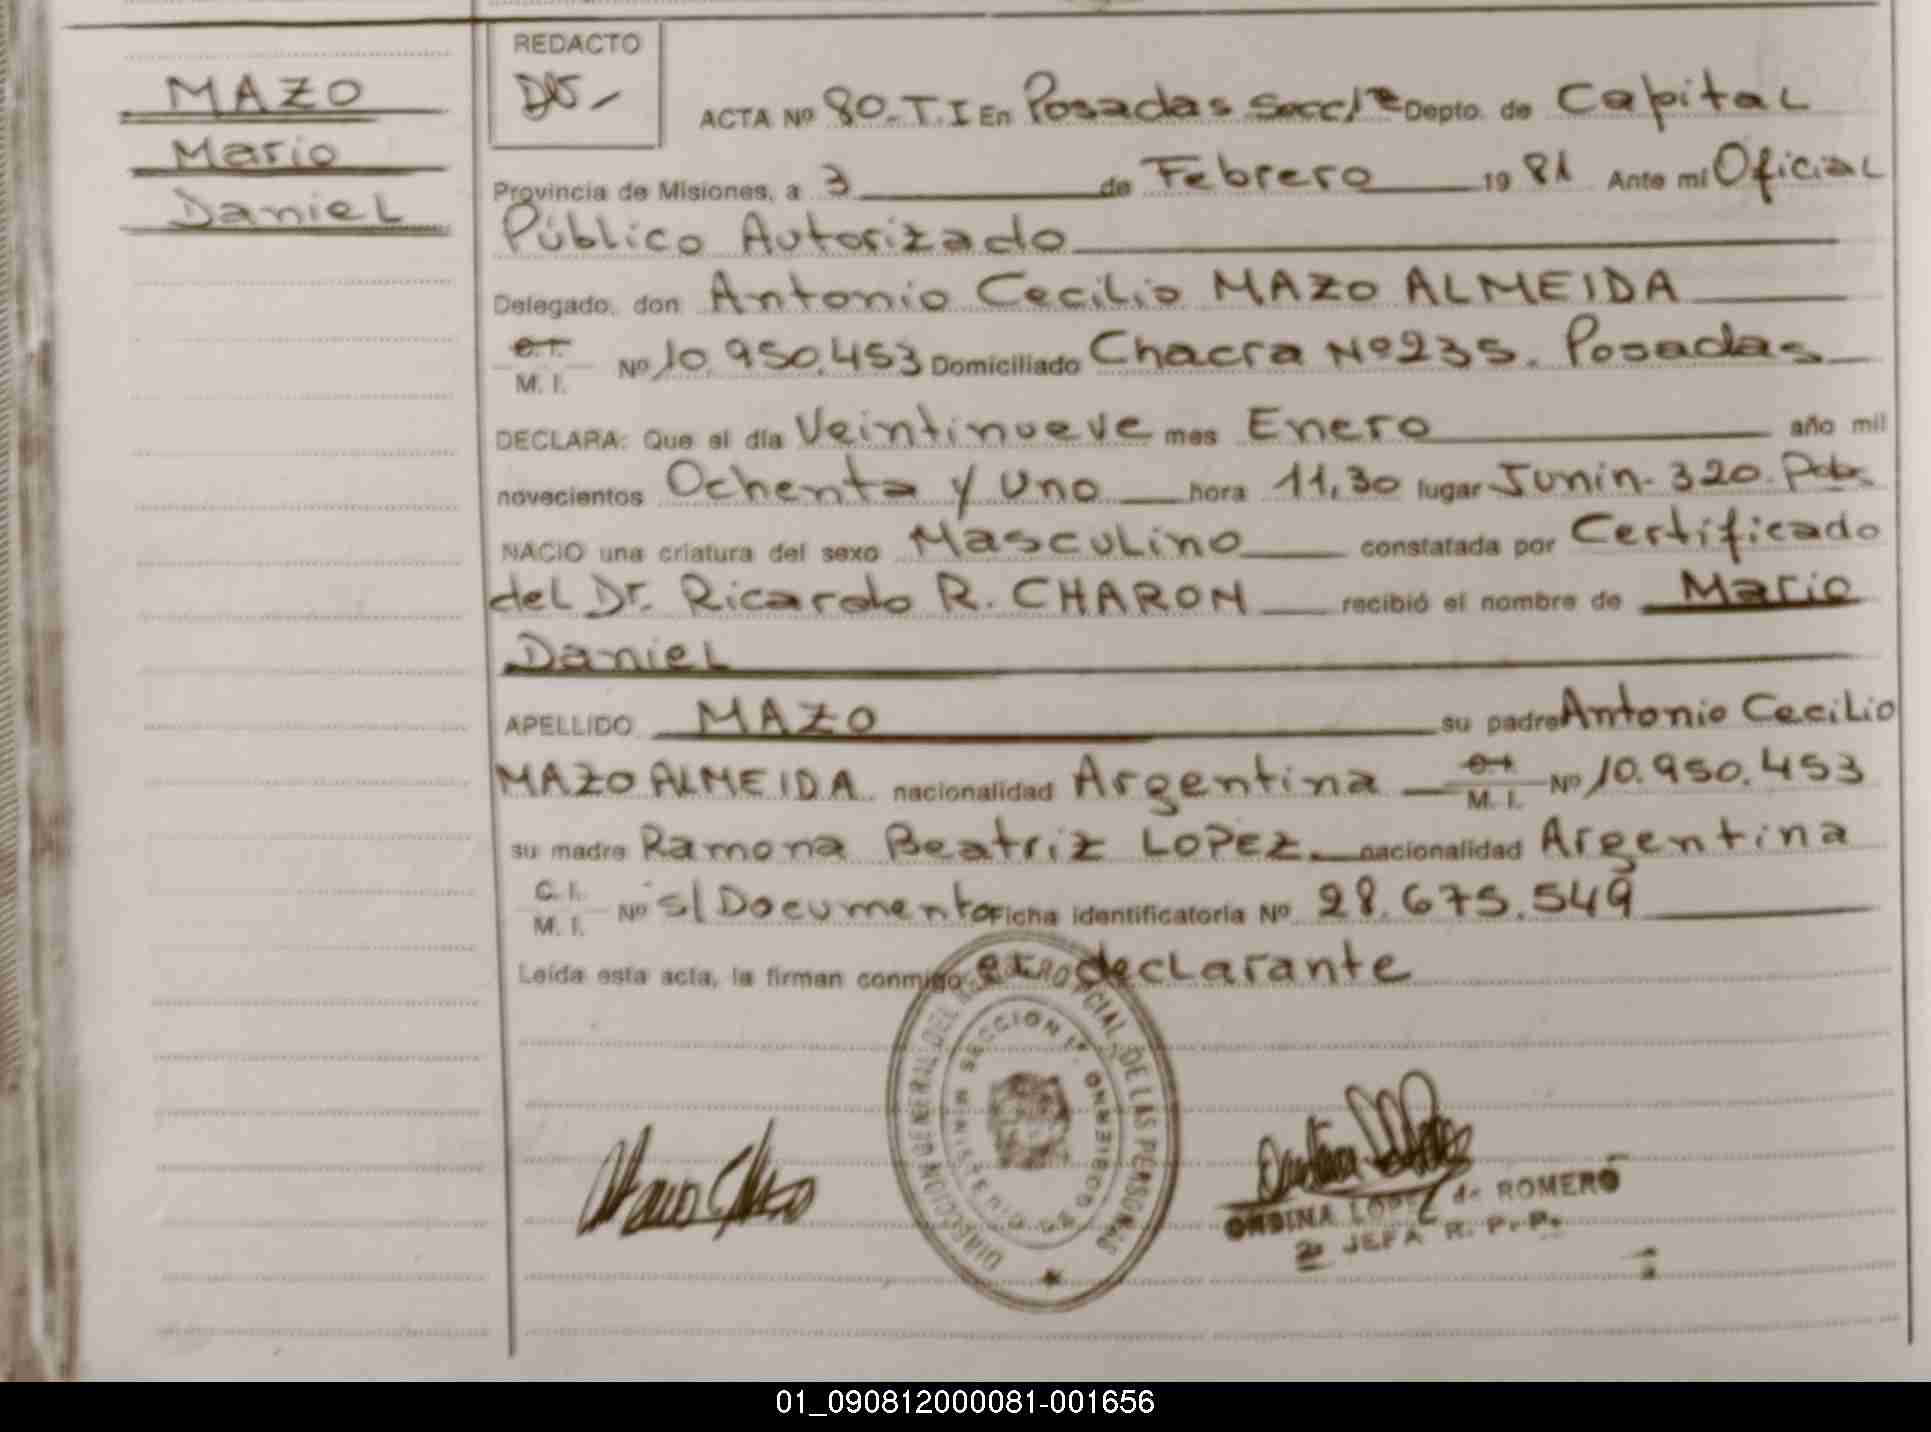 MAZO
Mario
Daniel
REDACTO
ACTA Nº 80-T.I En Posadas Secc 1ª Depto. de Capital
Provincia de Misiones, a 3 de Febrero 1981 Ante mi Oficial
Público Autorizado
Delegado, don Antonio Cecilio MAZO ALMEIDA
C.I.
M. I. Nº 10.950.453 Domiciliado Chacra Nº 235. Posadas
DECLARA: Que el día Veintinueve mes Enero año mil
novecientos Ochenta y Uno hora 11,30 lugar Junin. 320. Pdas
NACIO una criatura del sexo Masculino constatada por Certificado
del Dr. Ricardo R. CHARON recibió el nombre de Mario
Daniel
APELLIDO MAZO su padre Antonio Cecilio
MAZO ALMEIDA nacionalidad Argentina C.I.
M. I. Nº 10.950.453
su madre Ramona Beatriz LOPEZ. nacionalidad Argentina
C. I.
M. I. Nº s/Documento Ficha identificatoria Nº 28.675.549
Leída esta acta, la firman conmigo el declarante
DIRECCION GENERAL DEL REGISTRO PCIAL. DE LAS PERSONAS
SECCION 1ª.
LOPEZ de ROMERO
2ª JEFA R. P. P.
01_090812000081-001656